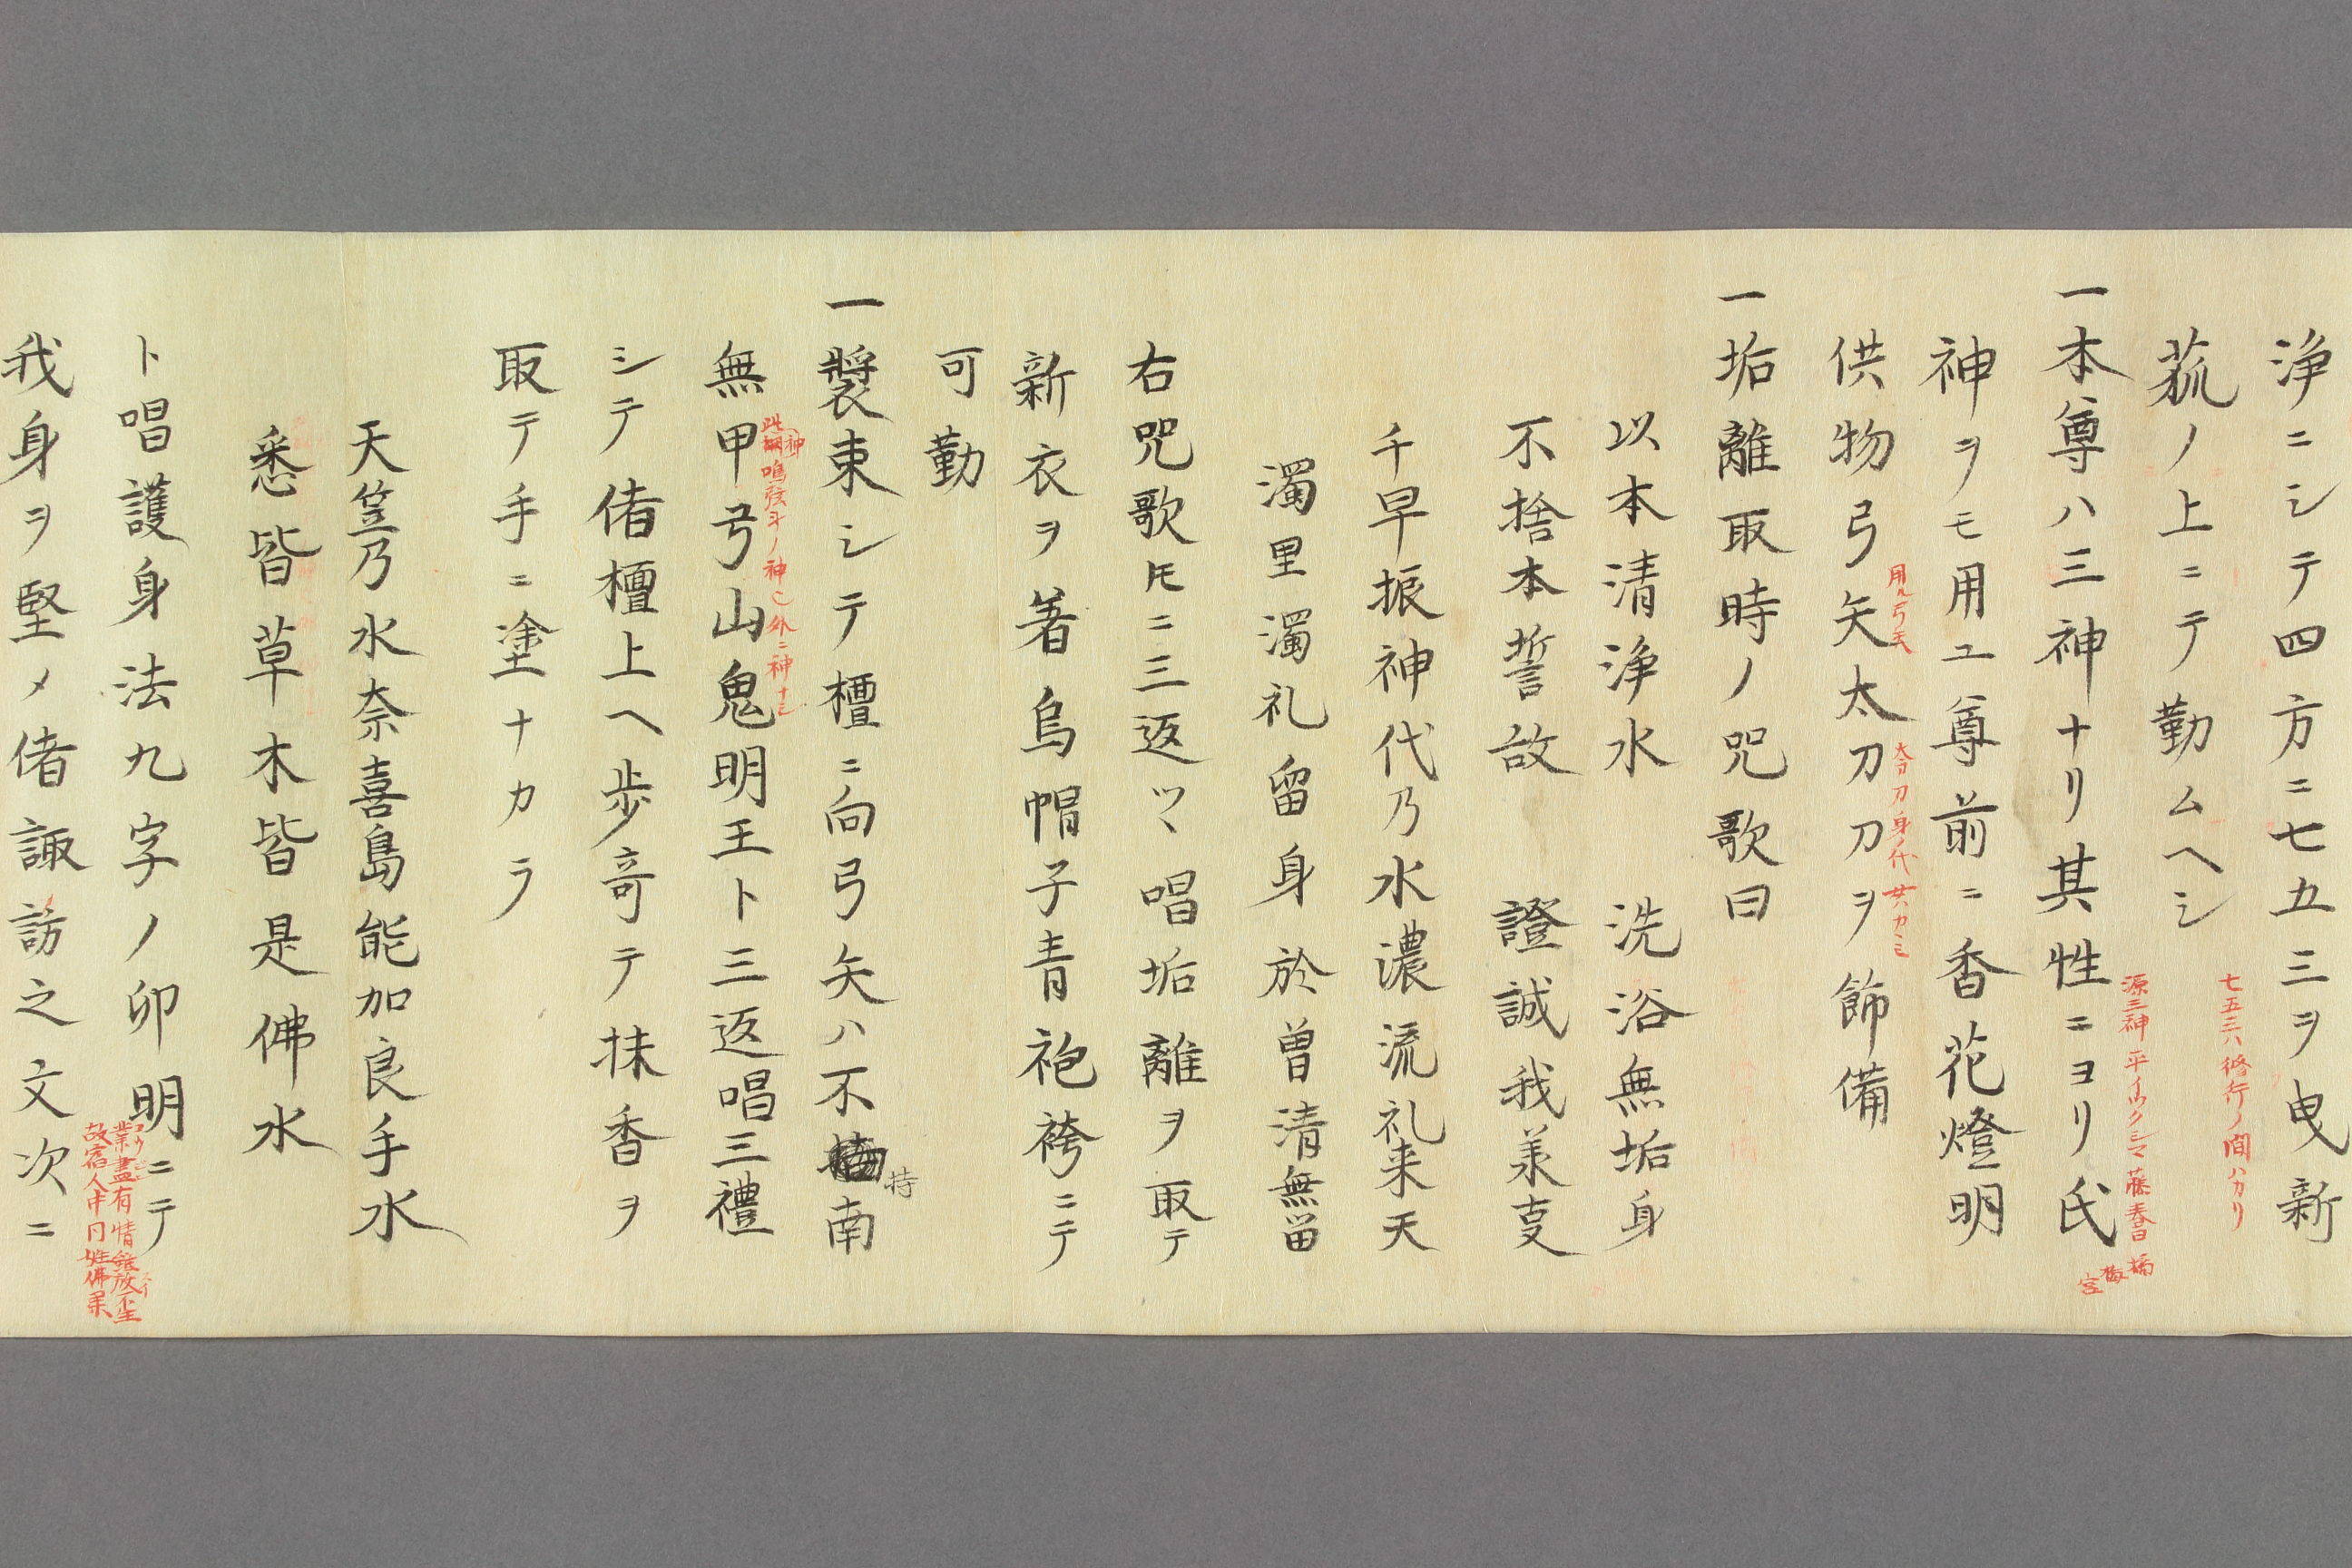 浄ニシテ四方ニ七五三ヲ曳新
菰ノ上ニテ勤ムヘシ
七五三ハ修行ノ間ハカリ
一本尊ハ三神ナリ其性ニヨリ氏
源三神平イツクシマ藤春日橘梅宮
神ヲモ用ユ尊前ニ香花燈明
供物弓矢太刀刀ヲ飾備
用ル弓矢
太刀刀身ノ代
一垢離取時ノ咒歌曰
以本清浄水　洗浴無垢身
不捨本誓故　證誠我美支
千早振神代乃水濃流礼来天
濁里濁礼留身於曽清無留
右咒歌𪜈ニ三返ツヽ唱垢離ヲ取テ
新衣ヲ着烏帽子青袍袴ニテ
可勤
一裝束シテ檀ニ向弓矢ハ不持南
無甲弓山鬼明王ト三返唱三禮
此神鳴弦斗ノ神也外ニ神ナシ
シテ偖檀上ヘ歩寄テ抹香ヲ
取テ手ニ塗ナカラ
天竺乃水奈喜島能加良手水
悉皆草木皆是佛水
ト唱護身法九字ノ卯明ニテ
業盡有情雖放不生
故宿人中同姓佛果
我身ヲ堅メ偖諏訪之文次ニ